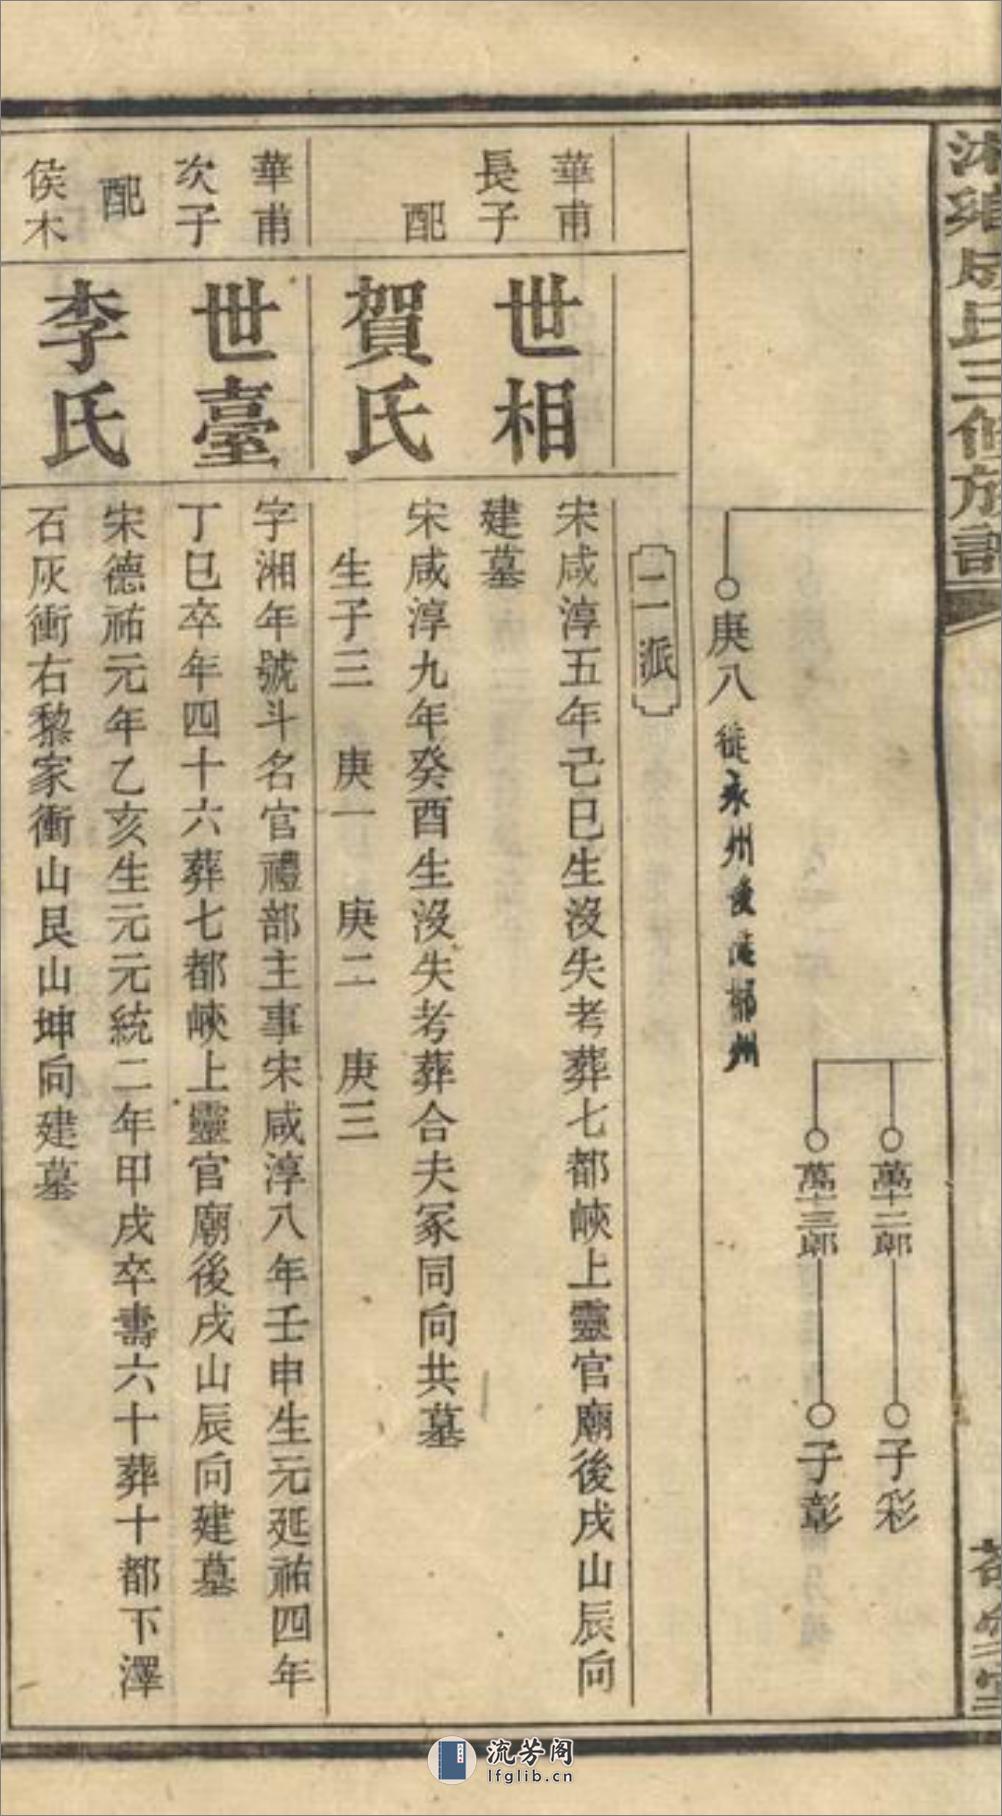 氏三修族譜
萬十二郎
子彩
萬十三郎
子彰
庚八
徙永州後遷郴州
二派
華甫
長子
世相
宋咸淳五年己巳生沒失考葬七都峽上靈官廟後戌山辰向
建墓
配
賀氏
宋咸淳九年癸酉生沒失考葬合夫冢同向共墓
生子三 庚一 庚二 庚三
華甫
次子
世臺
字湘年號斗名官禮部主事宋咸淳八年壬申生元延祐四年
丁巳卒年四十六葬七都峽上靈官廟後戌山辰向建墓
配
侯木
李氏
宋德祐元年乙亥生元元統二年甲戌卒壽六十葬十都下澤
石灰衝右黎家衝山艮山坤向建墓
流芳阁
lfglib.cn